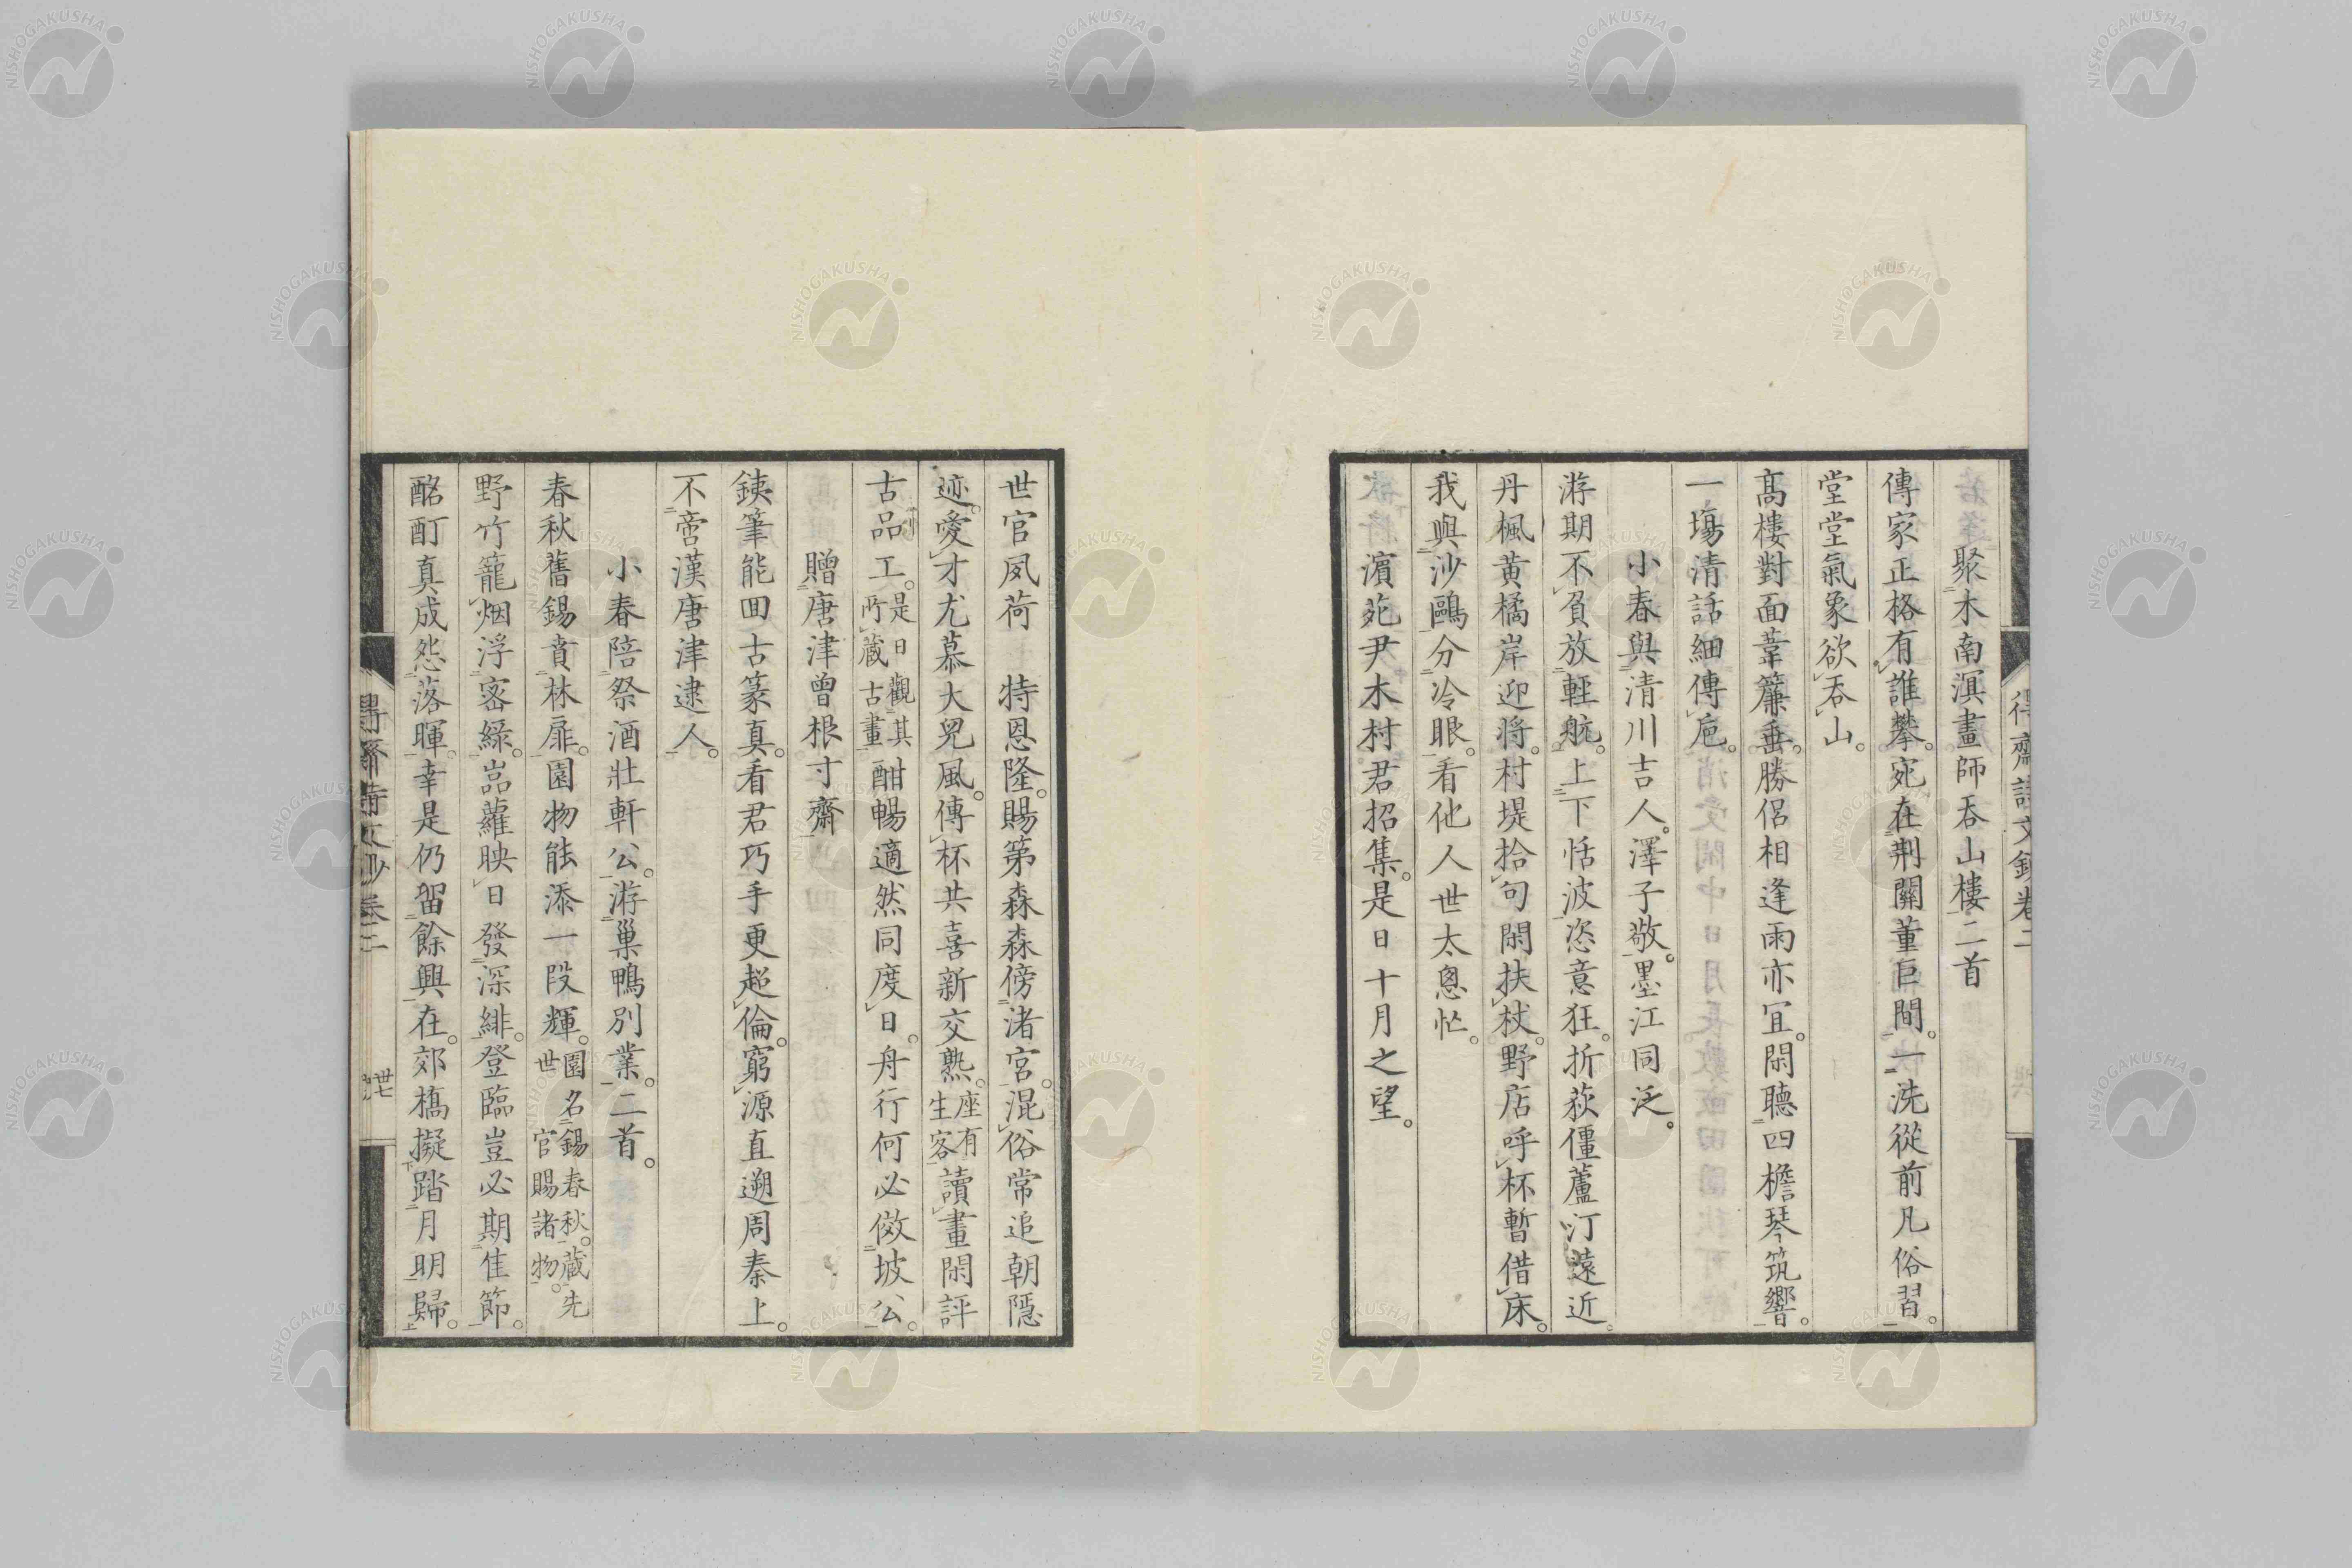 聚木南溟畫師吞山樓二首
傳家正格有誰攀。宛在荆關董巨間。一洗從前凡俗習。
堂堂氣象欲吞山。
髙樓對面葦簾垂。勝侶相逢雨亦宜。閑聽四檐琴筑響。
一塲清話細傳巵。
小春與清川吉人。澤子敬。墨江同泛。
游期不負放輕航。上下恬波恣意狂。折荻僵蘆汀遠近。
丹楓黄橘岸迎將。村堤拾句閑扶杖。野店呼杯暫借床。
我與沙鷗分冷眼。看他人世太悤忙。
濵苑尹木村君招集。是日十月之望。
世官夙荷 特恩隆。賜第森森傍渚宮。混俗常追朝隱
迹。愛才尤慕大兒風。傳杯共喜新交熟。座有生客讀畫閑評
古品工。是日觀其所藏古畫酣暢適然同度日。舟行何必傚坡公。
贈唐津曾根寸齋
銕筆能回古篆真。看君巧手更超倫。窮源直遡周秦上。
不啻漢唐津逮人。
小春陪祭酒壯軒公。游巢鴨別業。二首。
春秋舊錫賁林扉。園物能添一段輝。園名錫春秋。藏先世官賜諸物。
野竹籠烟浮密綠。嵓蘿映日發深緋。登臨豈必期佳節。
酩酊真成怨落暉。幸是仍留餘興在。郊橋擬踏月明歸。
齋詩文鈔卷二
齋詩文鈔卷二
卅七
NISHOGAKUSHA